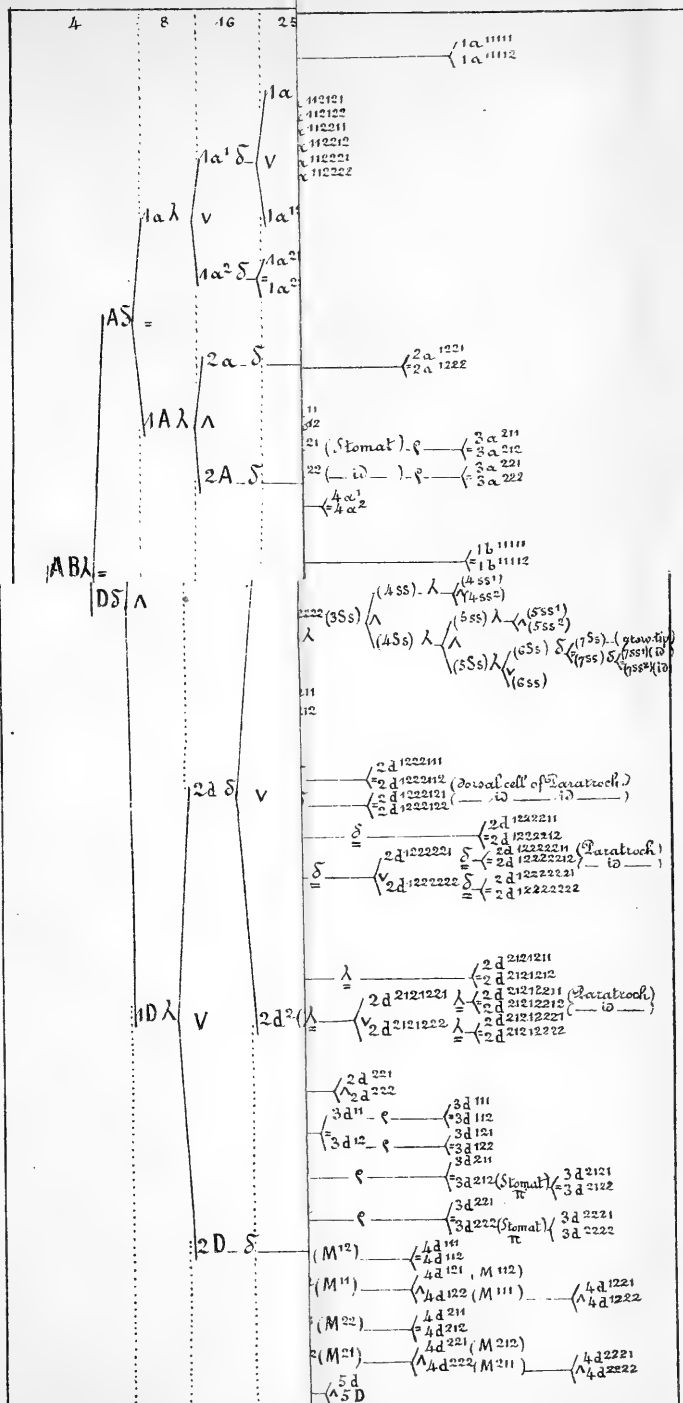 4 8 16 25
1a¹¹¹¹¹
1a¹¹¹¹²
1a
¹¹²¹²¹
¹¹²¹²²
¹¹²²¹¹
¹¹²²¹²
¹¹²²²¹
¹¹²²²²
1a¹ δ v
1aλ v
1a²δ
Aδ =
2a δ
2a¹²²¹
= 2a¹²²²
1Aλ ʌ
²¹ (Stomat) ρ
3a²¹¹
= 3a²¹²
2A δ
²² (— id —) ρ
3a²²¹
= 3a²²²
4a¹
= 4a²
ABλ =
1b¹¹¹¹¹
= 1b¹¹¹¹²
Dδ ʌ
²²²² (3Ss)
(4ss) λ
(4ss¹)
ʌ (4ss²)
λ
ʌ
(4Ss) λ
(5ss) λ
(5ss¹)
ʌ (5ss²)
ʌ
(5Ss) λ
(6Ss) δ
(7Ss) (grow.tip)
(7ss) δ
(7ss¹) (id)
(7ss²) (id)
v
(6ss)
²¹¹
²¹²
2d δ v
2d¹²²²¹¹¹
= 2d¹²²²¹¹² (dorsal cell of Paratroch.)
2d¹²²²¹²¹
= 2d¹²²²¹²² (— id — id —)
δ
2d¹²²²²¹¹
= 2d¹²²²²¹²
δ
2d¹²²²²²¹ δ
2d¹²²²²²¹¹ (Paratroch)
= 2d¹²²²²²¹² (— id —)
v
2d¹²²²²²² δ
2d¹²²²²²²¹
= 2d¹²²²²²²²
λ
2d²¹²¹²¹¹
= 2d²¹²¹²¹²
1Dλ v
2d² (
λ
2d²¹²¹²²¹ λ
2d²¹²¹²²¹¹ (Paratroch)
= 2d²¹²¹²²¹² (— id —)
v
2d²¹²¹²²² λ
2d²¹²¹²²²¹
= 2d²¹²¹²²²²
2d²²¹
ʌ 2d²²²
3d¹¹ ρ
3d¹¹¹
= 3d¹¹²
=
3d¹² ρ
3d¹²¹
= 3d¹²²
ρ
3d²¹¹
= 3d²¹² (Stomat) π
3d²¹²¹
= 3d²¹²²
ρ
3d²²¹
= 3d²²² (Stomat) π
3d²²²¹
3d²²²²
2D δ
(M¹²)
4d¹¹¹
= 4d¹¹²
(M¹¹)
4d¹²¹ (M¹¹²)
ʌ 4d¹²² (M¹¹¹)
4d¹²²¹
ʌ 4d¹²²²
(M²²)
4d²¹¹
= 4d²¹²
(M²¹)
4d²²¹ (M²¹²)
ʌ 4d²²² (M²¹¹)
4d²²²¹
ʌ 4d²²²²
5d
ʌ 5D